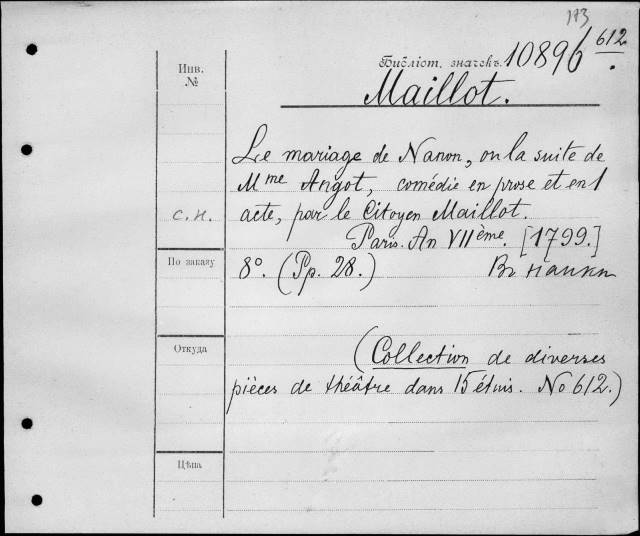 113
Инв.
№
Библіот. значекъ 10896 612
Maillot.
Le mariage de Nanon, ou la suite de
Mme Angot, comédie en prose et en 1
с.н. acte, par le Citoyen Maillot.
Paris. An VIIème. [1799.]
По заказу 8º. (Pp. 28.)
Откуда (Collection de diverses
pièces de théâtre dans 15 étuis. No 612.)
Цѣна